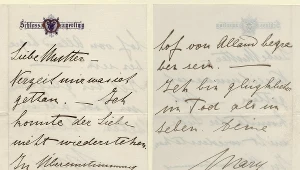 Schloss
Liebe Mutter –
Verzeih mir was ich
gethan. – Ich
konnte der Liebe
nicht wiederstehen.
In Übereinstimmung
hof von Alland begra
ben sein. –
Ich bin glücklicher
im Tod als im
Leben Deine
Mary